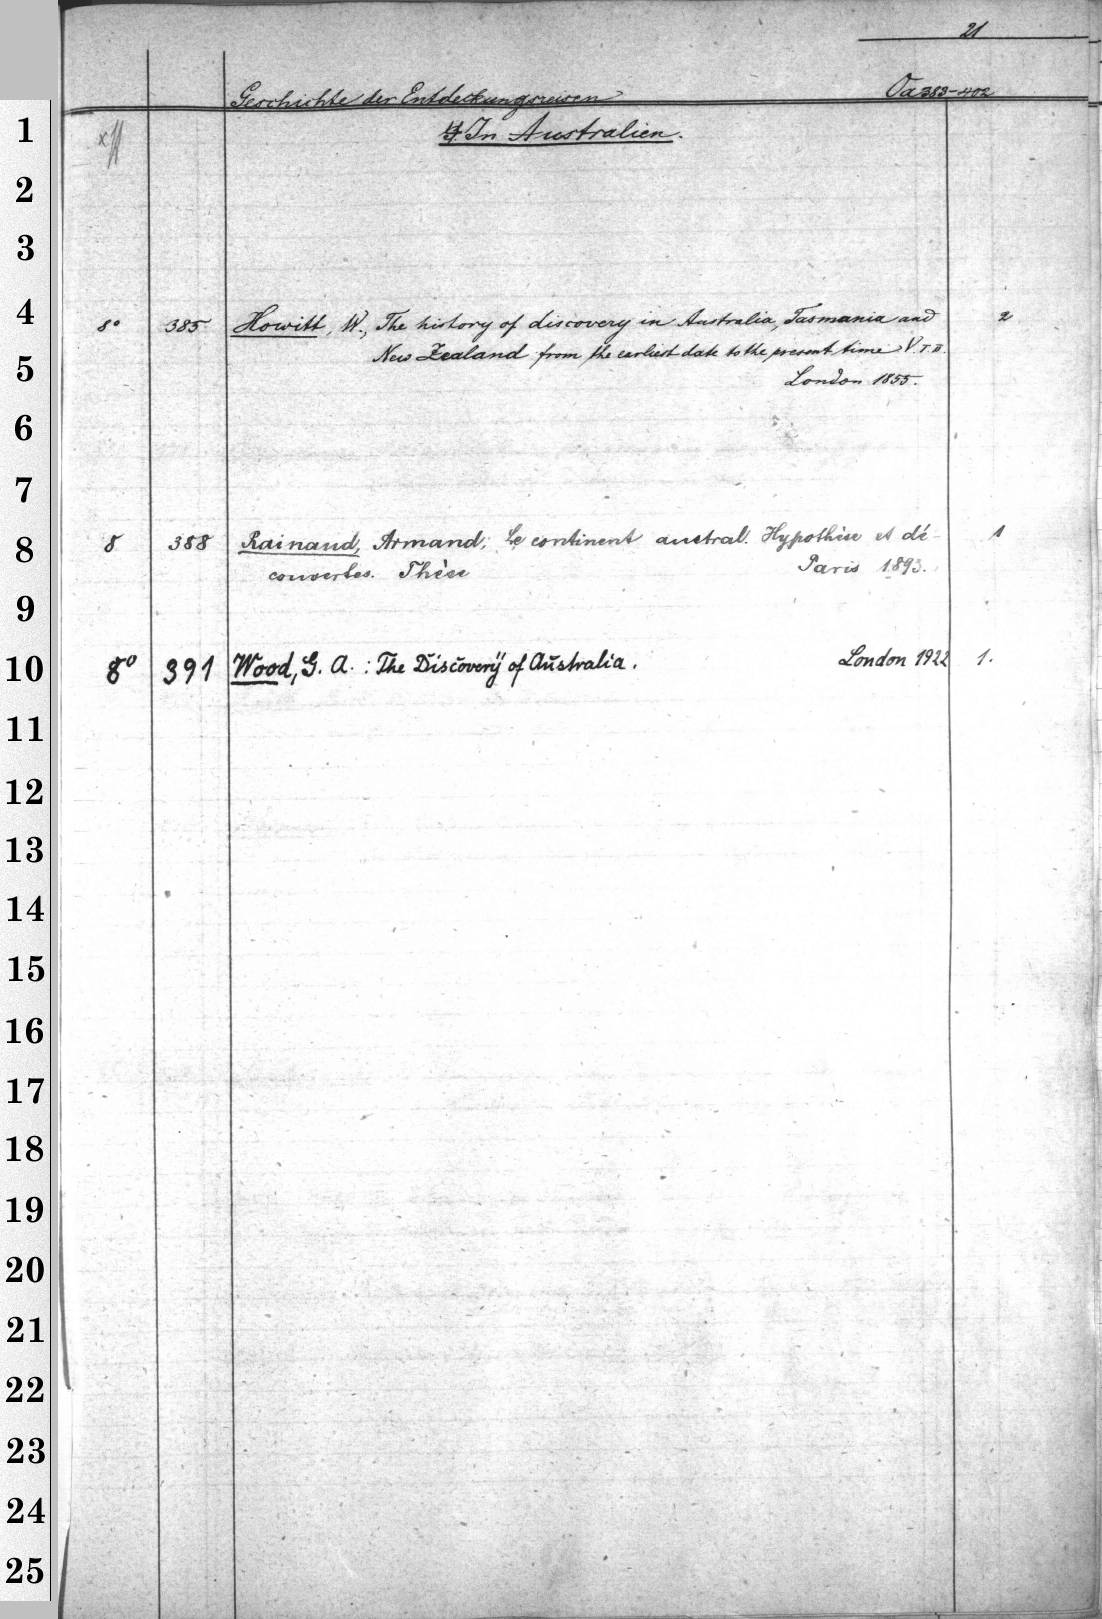 21
Geschichte der Entdeckungsreisen Oa 383-402
4. In Australien.
1
2
3
4 8° 385 Howitt, W., The history of discovery in Australia, Tasmania and 2
New Zealand from the earliest date to the present time V. I. II.
5 London 1855.
6
7
8 8 388 Rainaud, Armand, Le continent austral. Hypothèse et dé- 1
couvertes. Thèse Paris 1893.
9
10 8° 391 Wood, G. A. : The Discovery of Australia. London 1922 1.
11
12
13
14
15
16
17
18
19
20
21
22
23
24
25